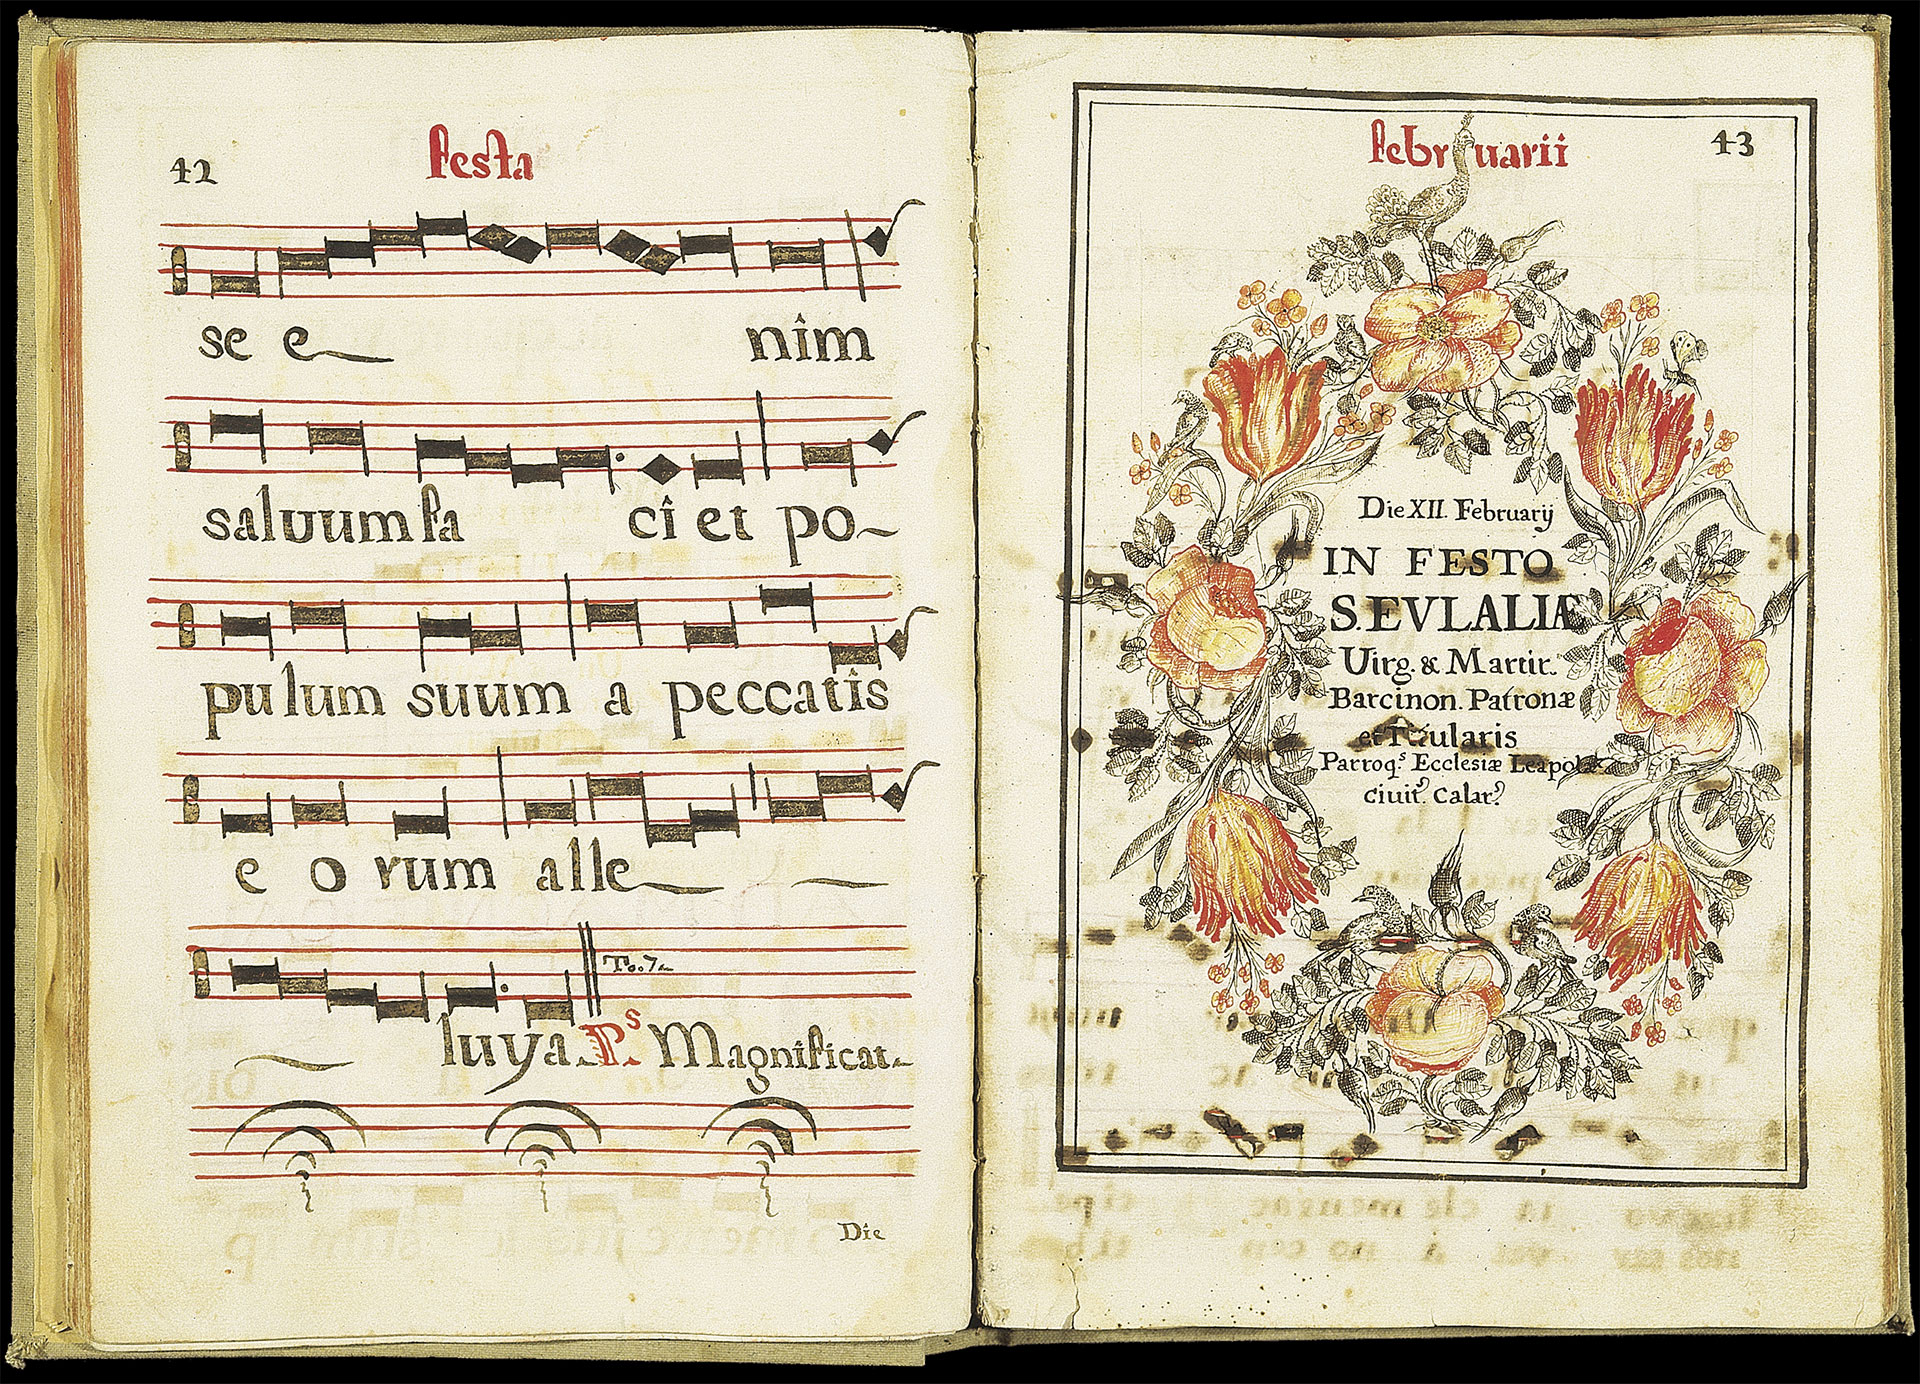 42 Festa
se e nim
salvum fa ci et po~
pu lum suum a peccatis
e o rum alle
To. 7
luya. Ps. Magnificat.
Die
Februarii 43
Die XII. Februarij
IN FESTO
S. EVLALIÆ
Uirg. & Martir.
Barcinon. Patronæ
et Titularis
Parroqs. Ecclesiæ Leapolæ
Ciuit. Calar.